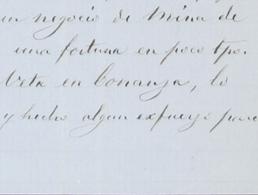 un negocio de mina de
una fortuna en poco tpo.
Veta en bonanza, lo
y hecho algun esfuerzo para